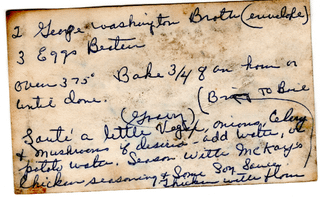 2 George Washington Broth (envelope)
3 Eggs Beaten
oven 375° Bake 3/4 of an hour or
until done.
(Gravy) (Bring to Boil
Sauté a little Veg, onions, Celery
& mushrooms if desired - add water, or
potato water. Season with McKay's
Chicken seasoning & Some Soy Sauce.
thicken with flour